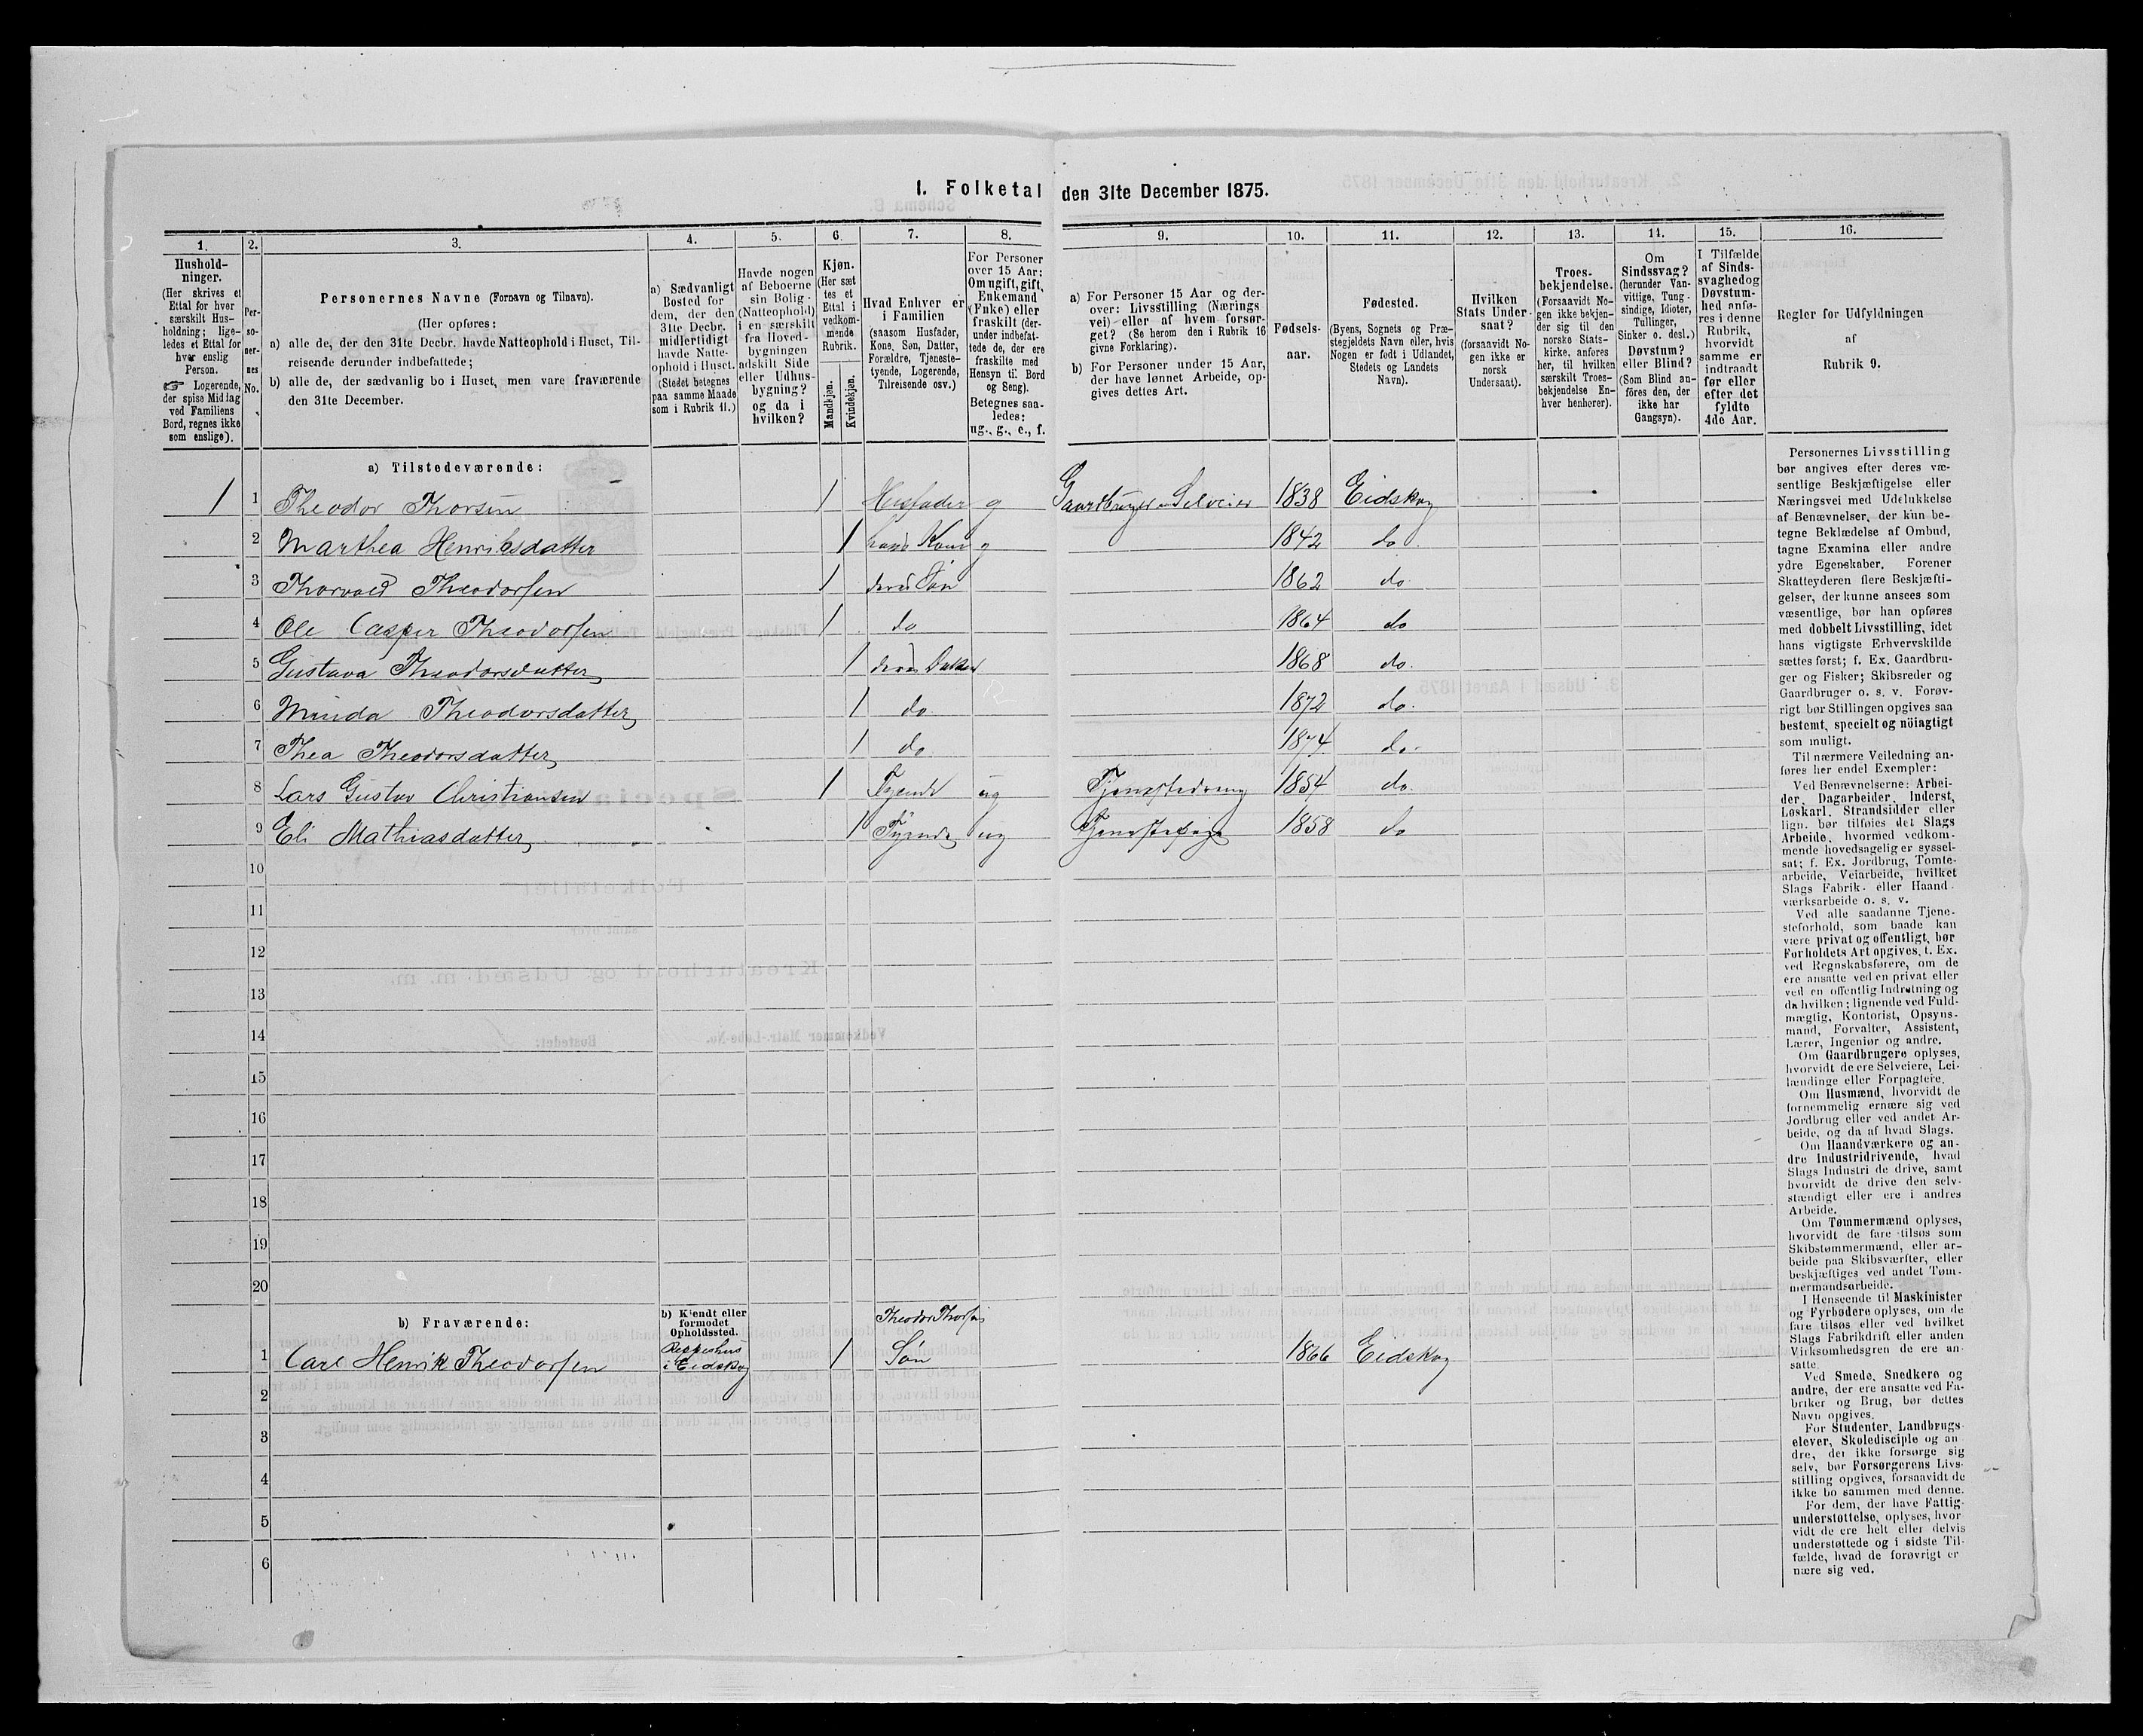 1. Folketal den 31te December 1875.
1.
2.
3.
4.
5.
6.
7.
8.
9.
10.
11.
12.
13.
14.
15.
16.
Hushold-
ninger.
(Her skrives et
Ettal for hver
særskilt Hus-
holdning; lige-
ledes et Ettal for
hver enslig
Person.
☞ Logerende,
der spise Middag
ved Familiens
Bord, regnes ikke
som enslige).
Per-
so-
ner-
nes
No.
Personernes Navne (Fornavn og Tilnavn).
(Her opføres:
a) alle de, der den 31te Decbr. havde Natteophold i Huset, Til-
reisende derunder indbefattede;
b) alle de, der sædvanlig bo i Huset, men vare fraværende
den 31te December.
a) Sædvanligt
Bosted for
dem, der den
31te Decbr.
midlertidigt
havde Natte-
ophold i Huset.
(Stedet betegnes
paa samme Maade
som i Rubrik 11.)
Havde nogen
af Beboerne
sin Bolig
(Natteophold)
i en særskilt
fra Hoved-
bygningen
adskilt Side
eller Udhus-
bygning?
og da i
hvilken?
Kjøn.
(Her sæt
tes et
Ettal i
vedkom-
mende
Rubrik.
Mandkjøn.
Kvindekjøn.
Hvad Enhver er
i Familien
(saasom Husfader,
Kone, Søn, Datter,
Forældre, Tjeneste-
tyende, Logerende,
Tilreisende osv.)
For Personer
over 15 Aar:
Om ugift, gift,
Enkemand
(Enke) eller
fraskilt (der-
under indbefat-
tede de, der ere
fraskilte med
Hensyn til Bord
og Seng).
Betegnes saa-
ledes:
ug., g., e., f.
a) For Personer 15 Aar og der-
over: Livsstilling (Nærings
vei) eller af hvem forsør-
get? (Se herom den i Rubrik 16
givne Forklaring).
b) For Personer under 15 Aar,
der have lønnet Arbeide, op-
gives dettes Art.
Fødsels-
aar.
Fødested.
(Byens, Sognets og Præ-
stegjeldets Navn eller, hvis
Nogen er født i Udlandet,
Stedets og Landets
Navn).
Hvilken
Stats Under-
saat?
(forsaavidt No-
gen ikke er
norsk
Undersaat).
Troes-
bekjendelse.
(Forsaavidt No-
gen ikke bekjen-
der sig til den
norske Stats-
kirke, anføres
her, til hvilken
særskilt Troes-
bekjendelse En-
hver henhører).
Om
Sindssvag?
(herunder Van-
vittige, Tung-
sindige, Idioter,
Tullinger,
Sinker o. desl.)
Døvstum?
eller Blind?
(Som Blind an-
føres den, der
ikke har
Gangsyn).
I Tilfælde
af Sinds-
svaghed og
Døvstum-
hed anfø-
res i denne
Rubrik,
hvorvidt
samme er
indtraadt
før eller
efter det
fyldte
4de Aar.
Regler for Udfyldningen
af
Rubrik 9.
a) Tilstedeværende:
1 1 Theodor Thorsen 1 Husfader g Gaardbruger Selveier 1838 Eidskog
2 Marthea Henriksdatter 1 hans Kone g 1842 do
3 Thorvald Theodorsen 1 deres Søn 1862 do
4 Ole Casper Theodorsen 1 do 1864 do
5 Gustava Theodorsdatter 1 deres Datter 1868 do.
6 Minda Theodorsdatter 1 do 1872 do.
7 Thea Theodorsdatter 1 do 1874 do.
8 Lars Gustav Christiansen 1 Tyende ug Tjenestedreng 1854 do.
9 Eli Mathiasdatter 1 Tyende ug Tjenestepige 1858 do
10
11
12
13
14
15
16
17
18
19
20
b) Fraværende:
b) Kjendt eller
formodet
Opholdssted.
Theodor Thorsens
1 Carl Henrik Theodorsen i Eidskog 1 Søn 1866 Eidskog
2
3
4
5
6
Personernes Livsstilling
bør angives efter deres væ-
sentlige Beskjæftigelse eller
Næringsvei med Udelukkelse
af Benævnelser, der kun be-
tegne Beklædelse af Ombud,
tagne Examina eller andre
ydre Egenskaber. Forener
Skatteyderen flere Beskjæfti-
gelser, der kunne ansees som
væsentlige, bør han opføres
med dobbelt Livsstilling, idet
hans vigtigste Erhvervskilde
sættes først; f. Ex. Gaardbru-
ger og Fisker; Skibsreder og
Gaardbruger o. s. v. Forøv-
rigt bør Stillingen opgives saa
bestemt, specielt og nöiagtigt
som muligt.
Til nærmere Veiledning an-
føres her endel Exempler:
Ved Benævnelserne: Arbei-
der, Dagarbeider, Inderst,
Løskarl, Strandsidder eller
lign. bør tilføies det Slags
Arbeide, hvormed vedkom-
mende hovedsagelig er syssel-
sat; f. Ex. Jordbrug, Tomte-
arbeide, Veiarbeide, hvilket
Slags Fabrik- eller Haand-
værksarbeide o. s. v.
Ved alle saadanne Tjene-
steforhold, som baade kan
være privat og offentligt, bør
Forholdets Art opgives, t. Ex.
ved Regnskabsførere, om de
ere ansatte ved en privat eller
ved en offentlig Indretning og
da hvilken; lignende ved Fuld-
mægtig, Kontorist, Opsyns-
mand, Forvalter, Assistent,
Lærer, Ingeniør og andre.
Om Gaardbrugere oplyses,
hvorvidt de ere Selveiere, Lei-
lændinge eller Forpagtere.
Om Husmænd, hvorvidt de
fornemmelig ernære sig ved
Jordbrug eller ved andet Ar-
beide, og da af hvad Slags.
Om Haandværkere og an-
dre Industridrivende, hvad
Slags Industri de drive, samt
hvorvidt de drive den selv-
stændigt eller ere i andres
Arbeide.
Om Tømmermænd oplyses,
hvorvidt de fare tilsøs som
Skibstømmermænd, eller ar-
beide paa Skibsværfter, eller
beskjæftiges ved andet Tøm-
mermandsarbeide.
I Henseende til Maskinister
og Fyrbødere oplyses, om de
fare tilsøs eller ved hvilket
Slags Fabrikdrift eller anden
Virksomhedsgren de ere an-
satte.
Ved Smede, Snedkere og
andre, der ere ansatte ved Fa-
briker og Brug, bør dettes
Navn opgives.
For Studenter, Landbrugs-
elever, Skoledisciple og an-
dre, der ikke forsørge sig
selv, bør Forsørgerens Livs-
stilling opgives, forsaavidt de
ikke bo sammen med denne.
For dem, der have Fattig-
understøttelse, oplyses, hvor-
vidt de ere helt eller delvis
understøttede og i sidste Til-
fælde, hvad de forøvrigt er
nære sig ved.